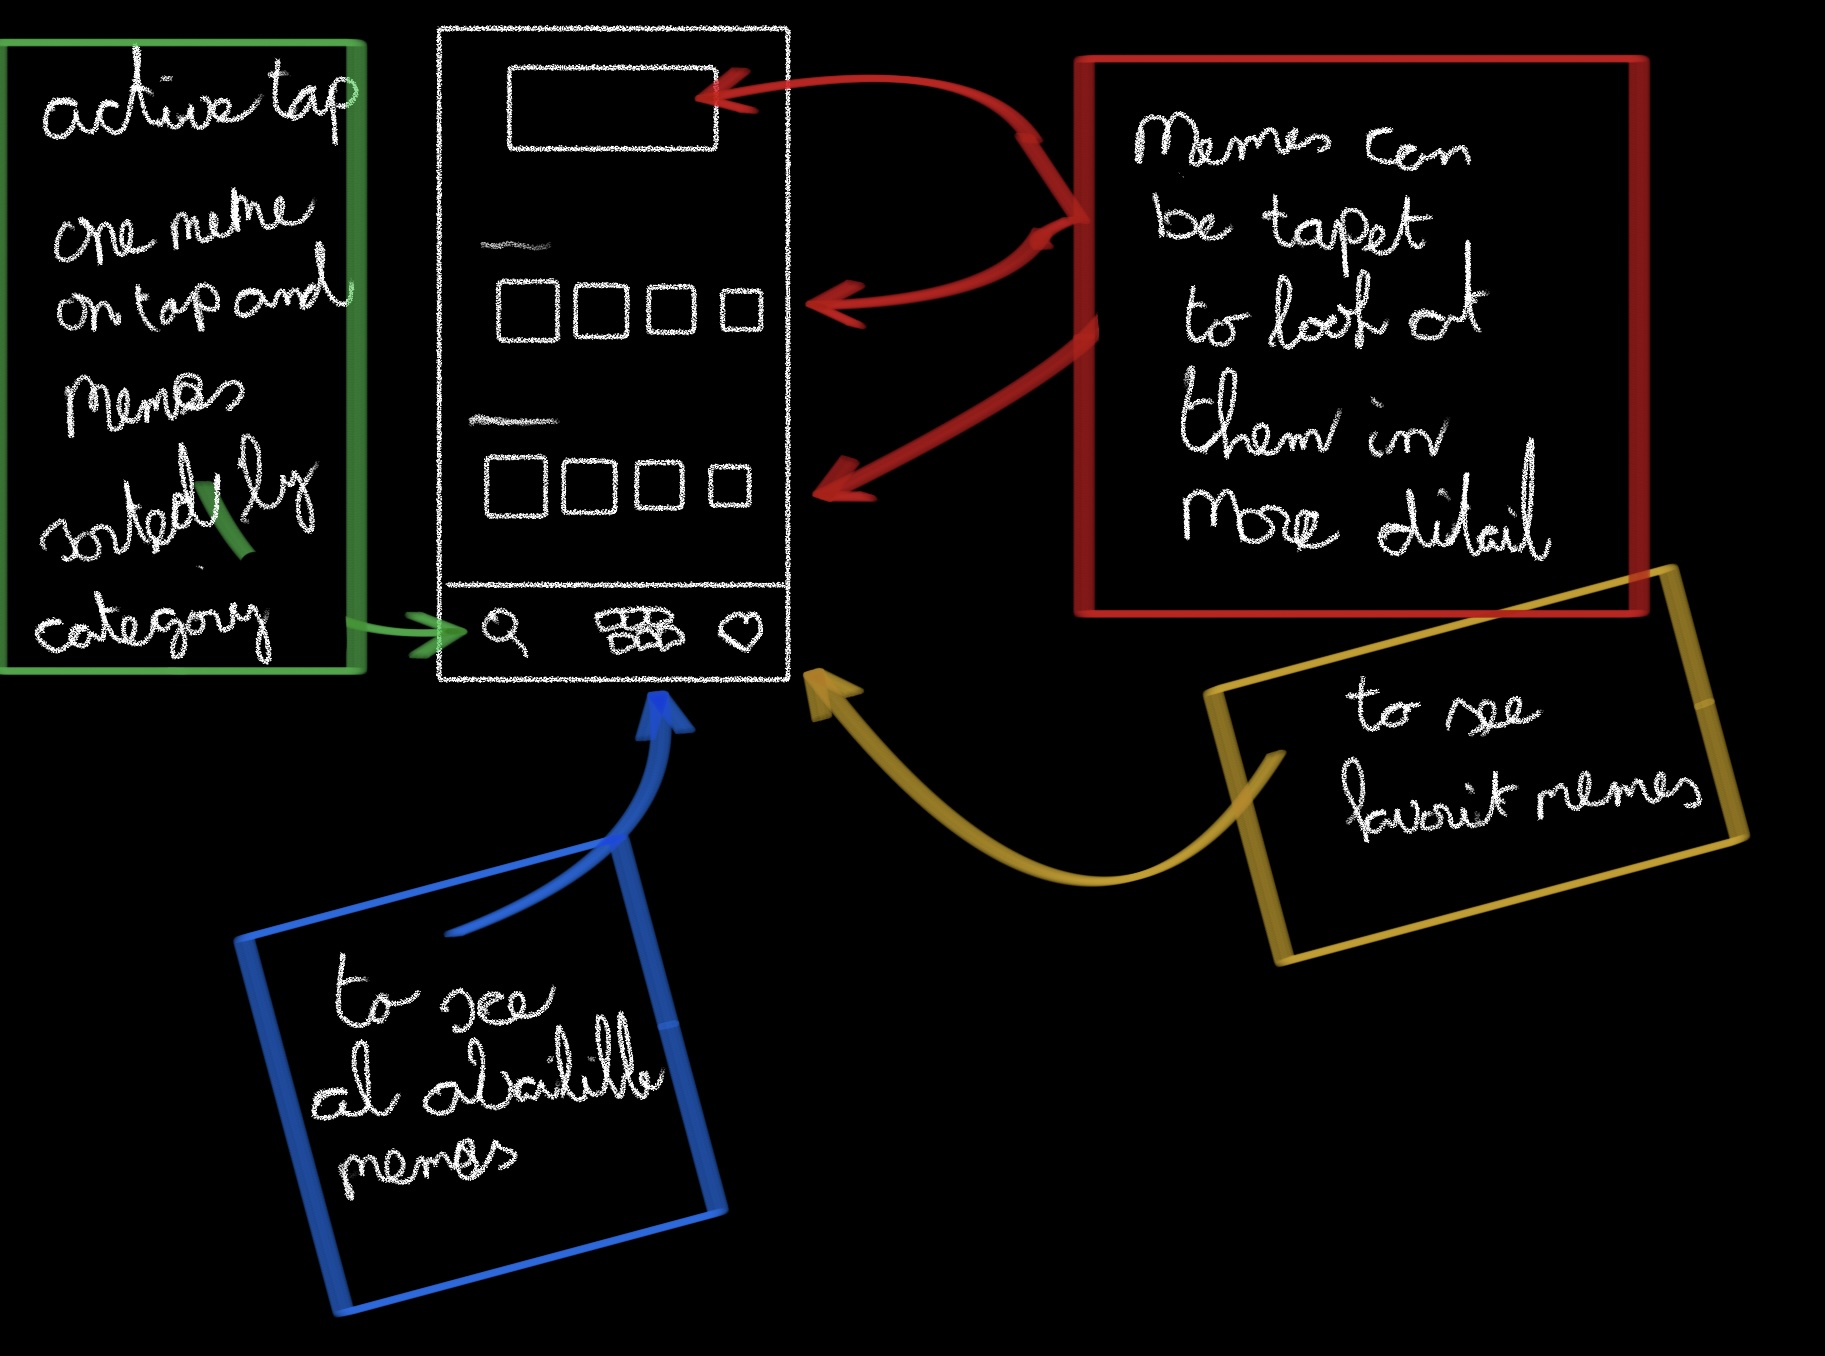 active tap
one meme
on tap and
Memes
sorted by
category
Memes can
be tapet
to look at
them in
More ditail
to see
favorit memes
to see
al abailible
memes